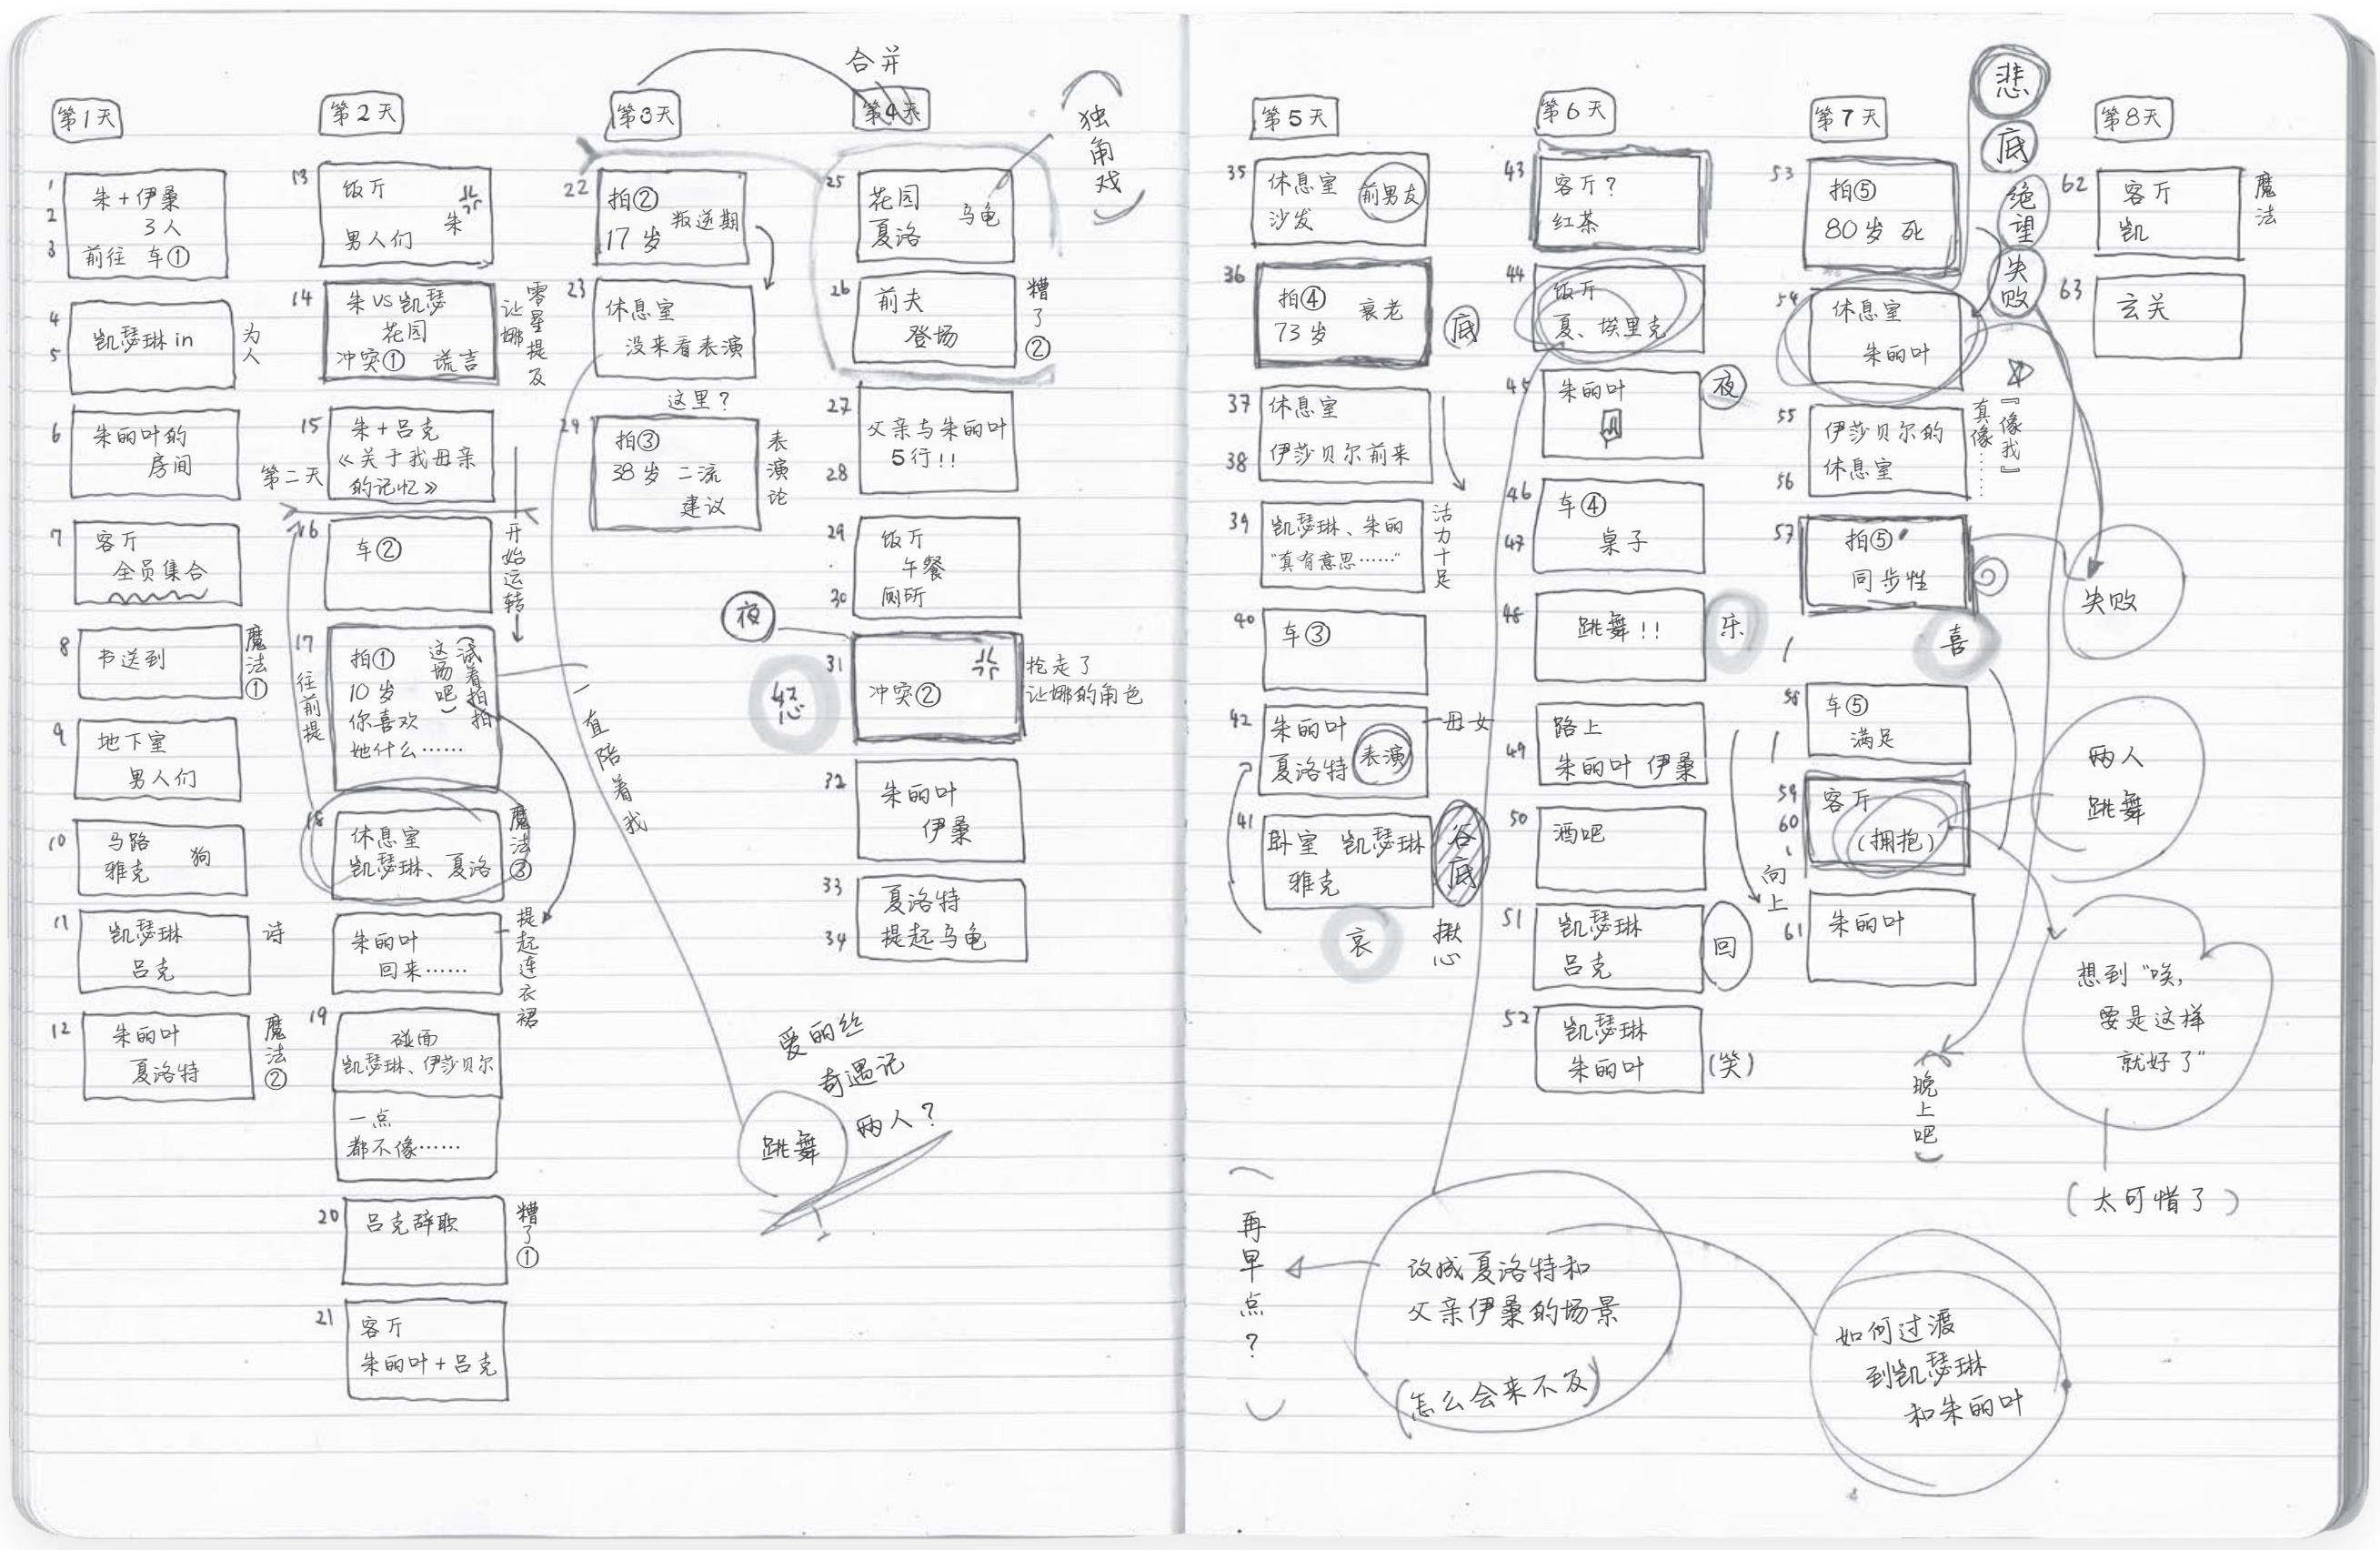 第1天
1
2
3
朱+伊桑
3人
前往 车①
4
5
凯瑟琳 in
为人
6
朱丽叶的
房间
7
客厅
全员集合
8
书送到
魔法①
9
地下室
男人们
10
马路
雅克 狗
11
凯瑟琳
吕克
诗
12
朱丽叶
夏洛特
魔法②
第2天
13
饭厅
男人们
朱
14
朱VS凯瑟
花园
冲突① 谎言
零星提及
让娜
15
第二天
朱+吕克
《关于我母亲
的记忆》
16
车②
开始运转
17
往前提
拍①
10岁
你喜欢
她什么……
(试着拍拍
这场吧)
18
休息室
凯瑟琳、夏洛
魔法③
朱丽叶
回来……
提起连衣裙
19
碰面
凯瑟琳、伊莎贝尔
一点
都不像……
20
吕克辞职
糟了①
21
客厅
朱丽叶+吕克
第3天
22
拍②
17岁
叛逆期
23
休息室
没来看表演
这里?
29
拍③
38岁 二流
建议
表演论
一直陪着我
合并
第4天
(独角戏)
25
花园
夏洛
乌龟
26
前夫
登场
糟了②
27
28
父亲与朱丽叶
5行!!
29
30
饭厅
午餐
厕所
夜
怒
31
冲突②
抢走了
让娜的角色
32
朱丽叶
伊桑
33
34
夏洛特
提起乌龟
爱的丝
奇遇记
两人?
跳舞
第5天
35
休息室
沙发
前男友
36
拍④
73岁
衰老
底
37
38
休息室
伊莎贝尔前来
39
凯瑟琳、朱丽
“真有意思……”
活力十足
40
车③
42
朱丽叶
夏洛特
表演
母女
41
卧室 凯瑟琳
雅克
谷底
哀
揪心
第6天
43
客厅?
红茶
44
饭厅
夏、埃里克
45
朱丽叶
夜
46
47
车④
桌子
48
跳舞!!
乐
49
路上
朱丽叶 伊桑
50
酒吧
51
凯瑟琳
吕克
回
52
凯瑟琳
朱丽叶
(笑)
向上
第7天
悲
底
绝望
失败
53
拍⑤
80岁 死
54
休息室
朱丽叶
『像我』
真像……
55
56
伊莎贝尔的
休息室
57
拍⑤'
同步性
喜
失败
58
车⑤
满足
59
60
客厅
(拥抱)
两人
跳舞
61
朱丽叶
想到“唉,
要是这样
就好了”
(太可惜了)
(晚上吧)
第8天
62
客厅
凯
魔法
63
玄关
(再早点?)
改成夏洛特和
父亲伊桑的场景
(怎么会来不及)
如何过渡
到凯瑟琳
和朱丽叶